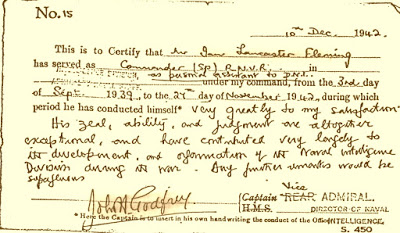 No. 15
10th Dec. 1942.
This is to Certify that Mr Ian Lancaster Fleming
has served as Commander (Sp) R.N.V.R. in
as personal assistant to D.N.I.
under my command, from the 3rd day
of Sept. 1939, to the 27th day of November 1942, during which
period he has conducted himself* very greatly to my satisfaction.
His zeal, ability, and judgment are altogether
exceptional, and have contributed very largely to
the development, and organisation of the Naval Intelligence
Division during the war. Any further remarks would be
superfluous
John H Godfrey
Vice
Captain REAR ADMIRAL.
H.M.S. DIRECTOR OF NAVAL
* Here the Captain is to insert in his own handwriting the conduct of the Officer
INTELLIGENCE.
S. 450